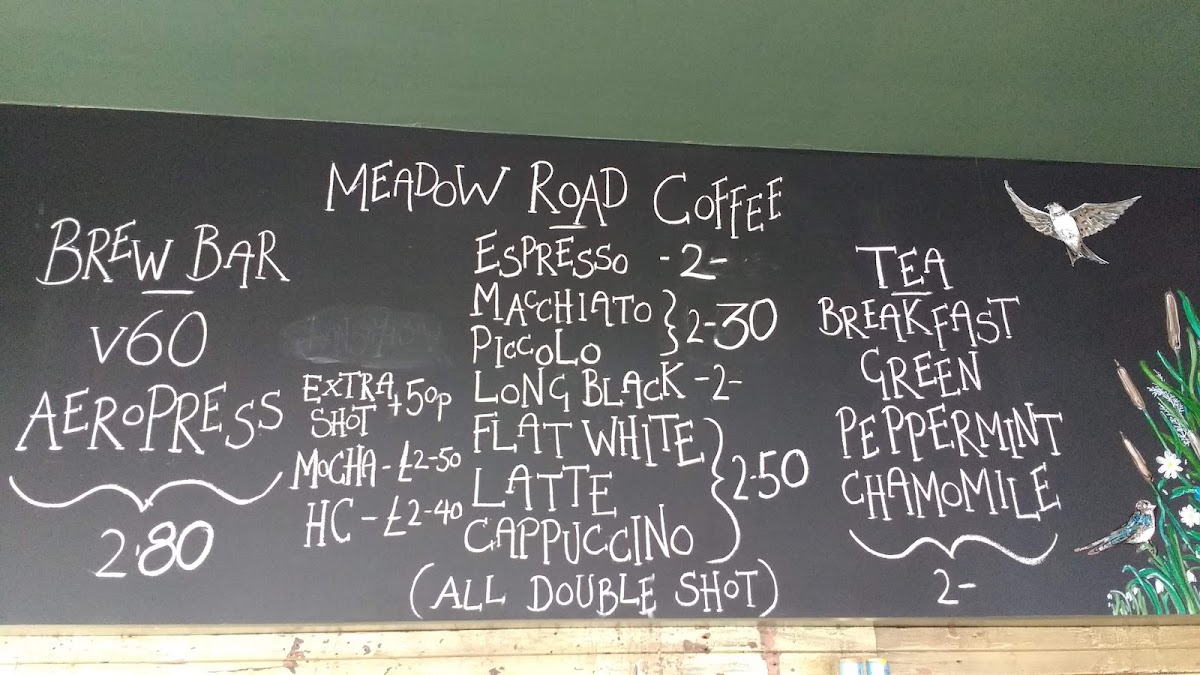 MEADOW ROAD COFFEE
BREW BAR
V60
AEROPRESS
2.80
EXTRA SHOT +50p
MOCHA - £2-50
HC - £2-40
ESPRESSO -2-
MACCHIATO
PICCOLO
2-30
LONG BLACK -2-
FLAT WHITE
LATTE
CAPPUCCINO
2.50
(ALL DOUBLE SHOT)
TEA
BREAKFAST
GREEN
PEPPERMINT
CHAMOMILE
2-